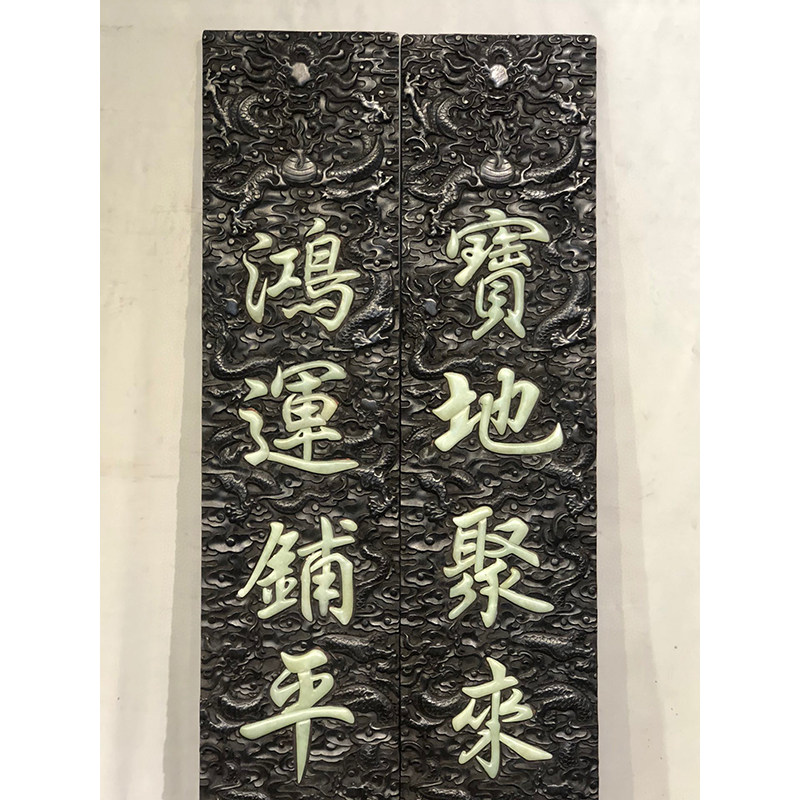 寶地聚來
鴻運鋪平